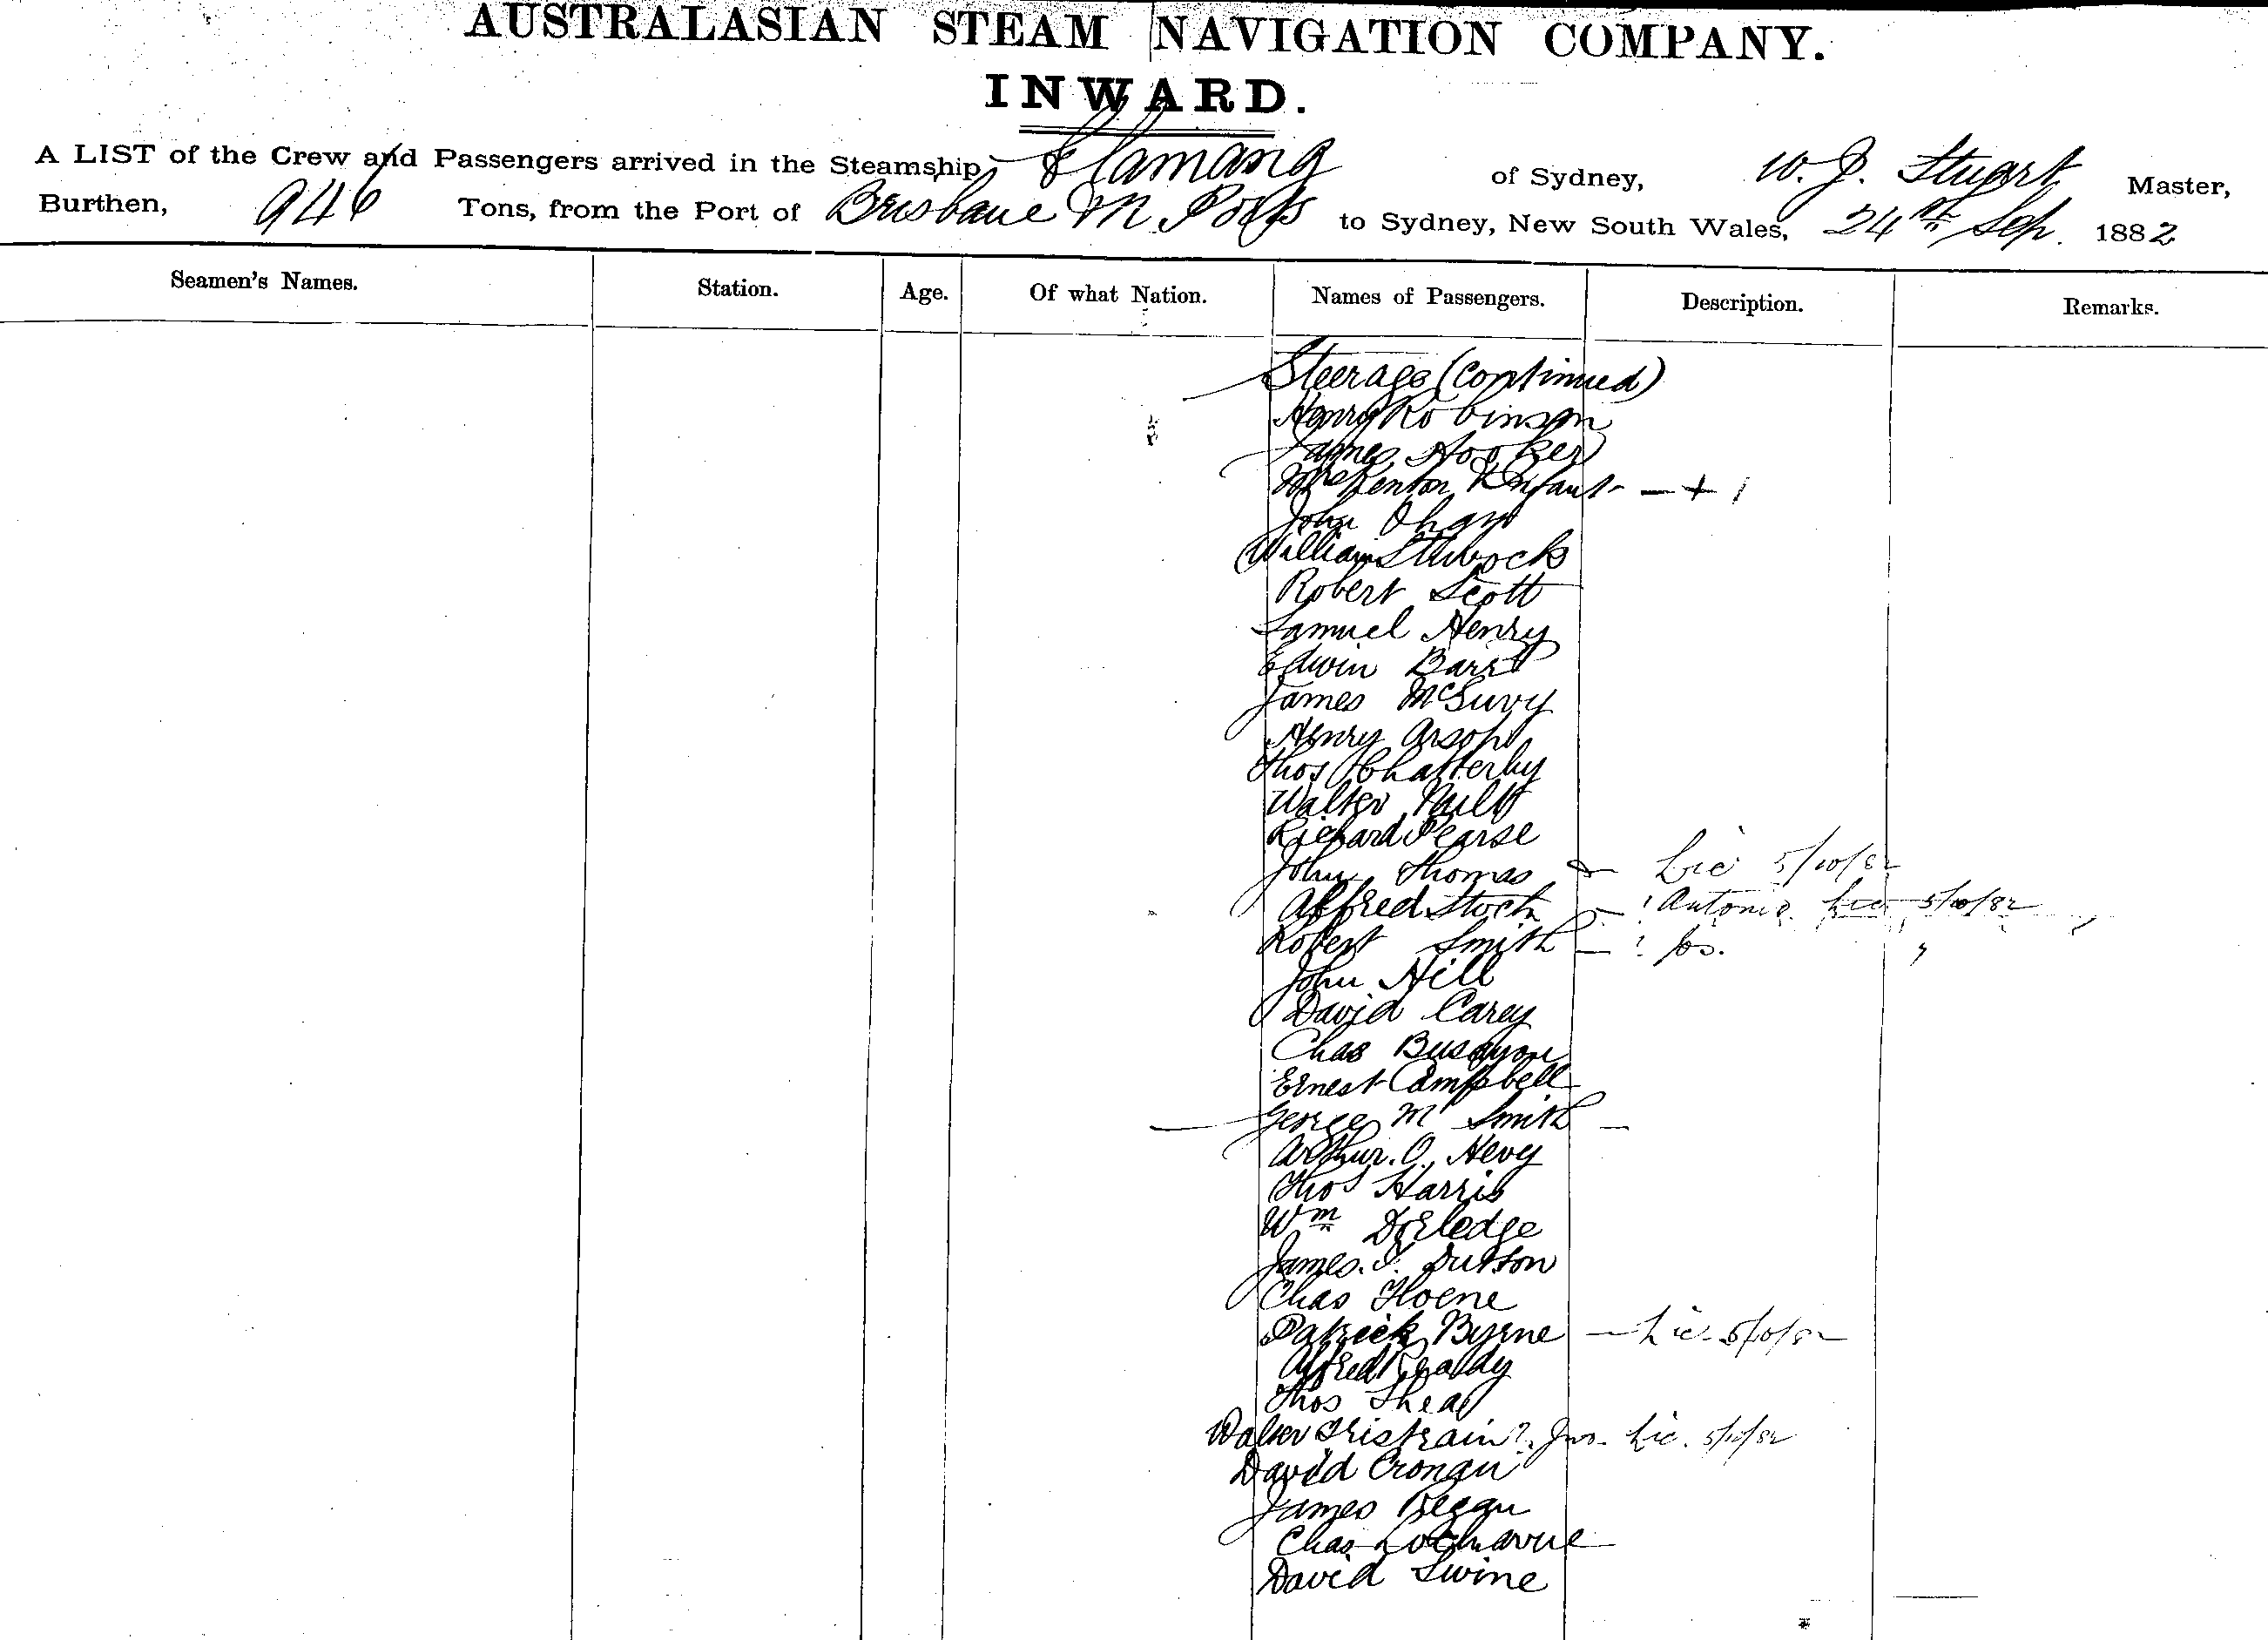 AUSTRALASIAN STEAM NAVIGATION COMPANY.
INWARD.
A LIST of the Crew and Passengers arrived in the Steamship of Sydney, W. J. Stuart Master,
Burthen, 946 Tons, from the Port of Brisbane M. Ports to Sydney, New South Wales, 24th Sep. 1882
Seamen's Names. Station. Age. Of what Nation. Names of Passengers. Description. Remarks.
Steerage (Continued)
Henry Robinson
James Hooker
Mrs Infant - + 1
John
William
Robert Scott
Samuel Henry
Edwin
James
Henry Arson
Thos Chatterby
Walter
Richard Pearse
John Thomas - Lic 5/10/82
Alfred Stock - ? Antonio Lic 5/10/82
Robert Smith - ? Jos. "
John Hill
David Carey
Chas
Ernest Campbell
George M Smith -
Arthur. O. Hevy
Thos Harris
Wm
James. T. Dutton
Chas Hoene
Patrick Byrne - Lic. 5/10/82
Alfred
Thos Shea
Walter Tristrain ? Jno. Lic. 5/10/82
David Cronan
James Regan
Chas
David Swine